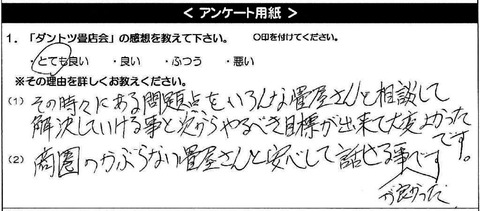 < アンケート用紙 >
1．「ダントツ畳店会」の感想を教えて下さい。　○印を付けてください。
・とても良い　・良い　・ふつう　・悪い
※その理由を詳しくお教えください。
(1) その時々にある問題点をいろんな畳屋さんと相談して
解決していける事と次からやるべき目標が出来て大変よかった
です。
(2) 商圏のかぶらない畳屋さんと安心して話せる事です
が良かった